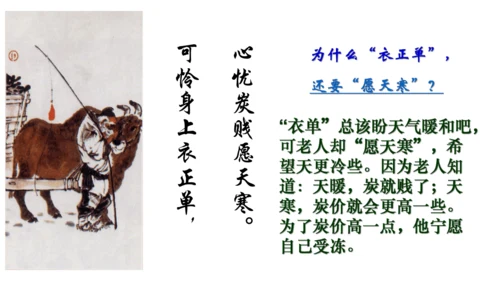 可怜身上衣正单，
心忧炭贱愿天寒。
为什么“衣正单”，
还要“愿天寒”？
“衣单”总该盼天气暖和吧，
可老人却“愿天寒”，希
望天更冷些。因为老人知
道：天暖，炭就贱了；天
寒，炭价就会更高一些。
为了炭价高一点，他宁愿
自己受冻。